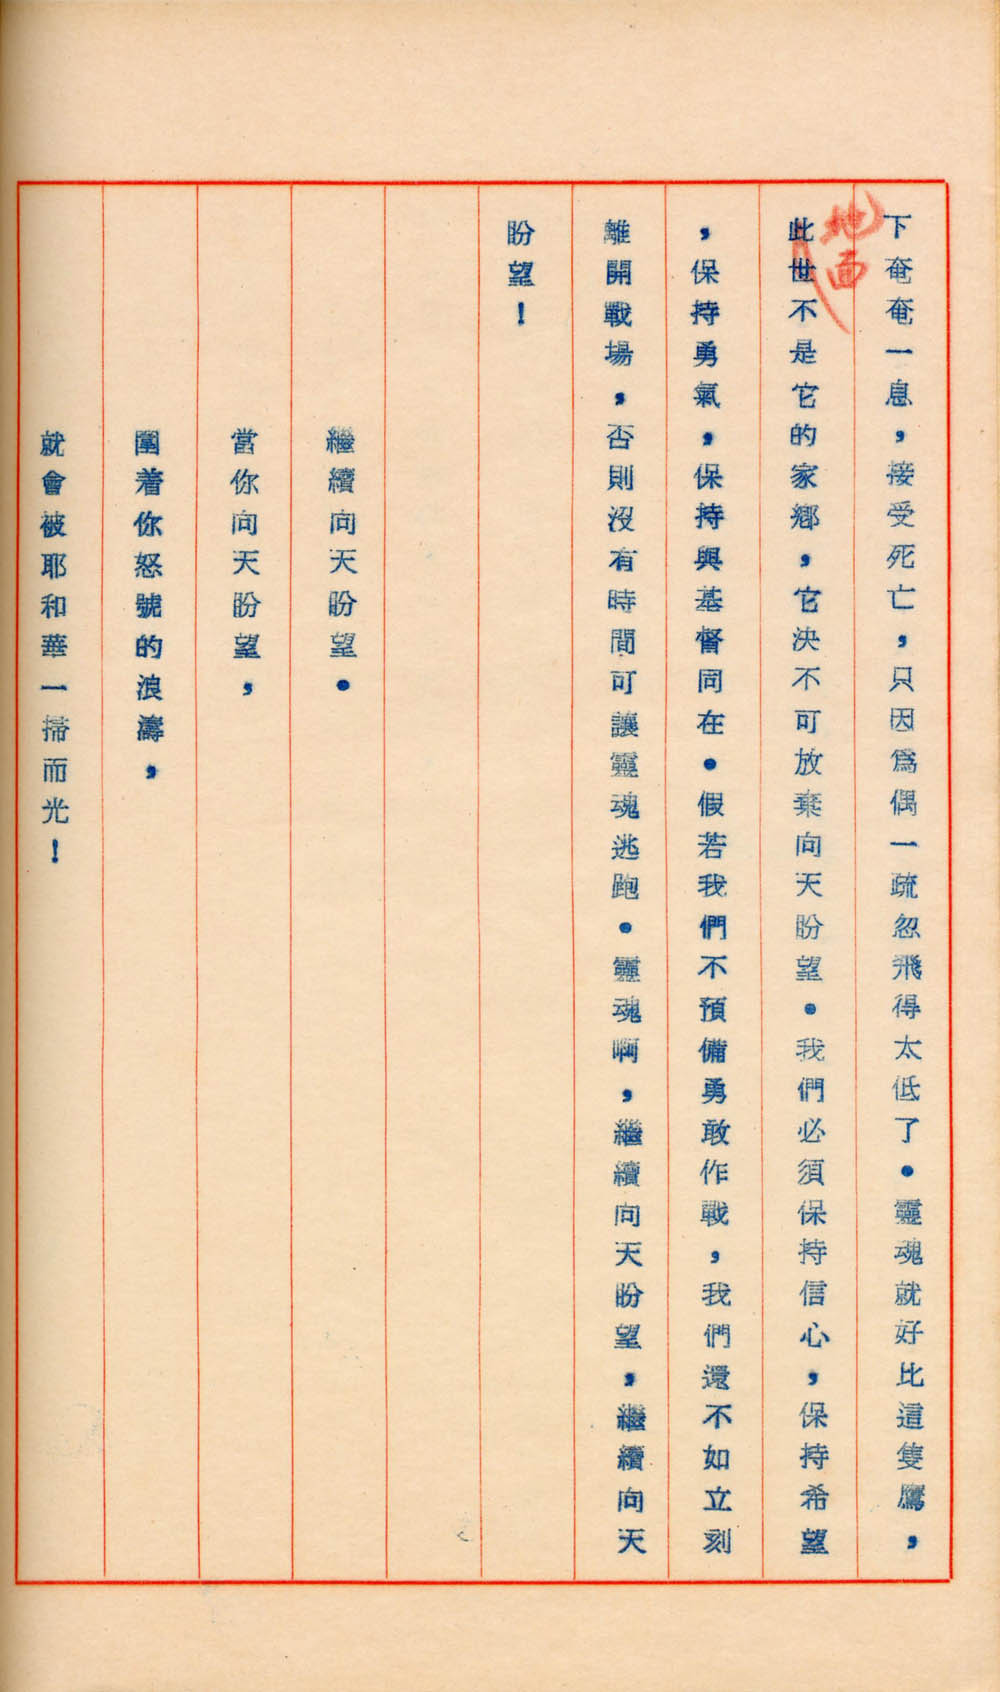 下奄奄一息，接受死亡，只因爲偶一疏忽飛得太低了．靈魂就好比這隻鷹，
地面
此世不是它的家鄉，它決不可放棄向天盼望．我們必須保持信心，保持希望
，保持勇氣，保持與基督同在．假若我們不預備勇敢作戰，我們還不如立刻
離開戰場，否則沒有時間可讓靈魂逃跑．靈魂啊，繼續向天盼望，繼續向天
盼望！
繼續向天盼望．
當你向天盼望，
圍着你怒號的浪濤，
就會被耶和華一掃而光！